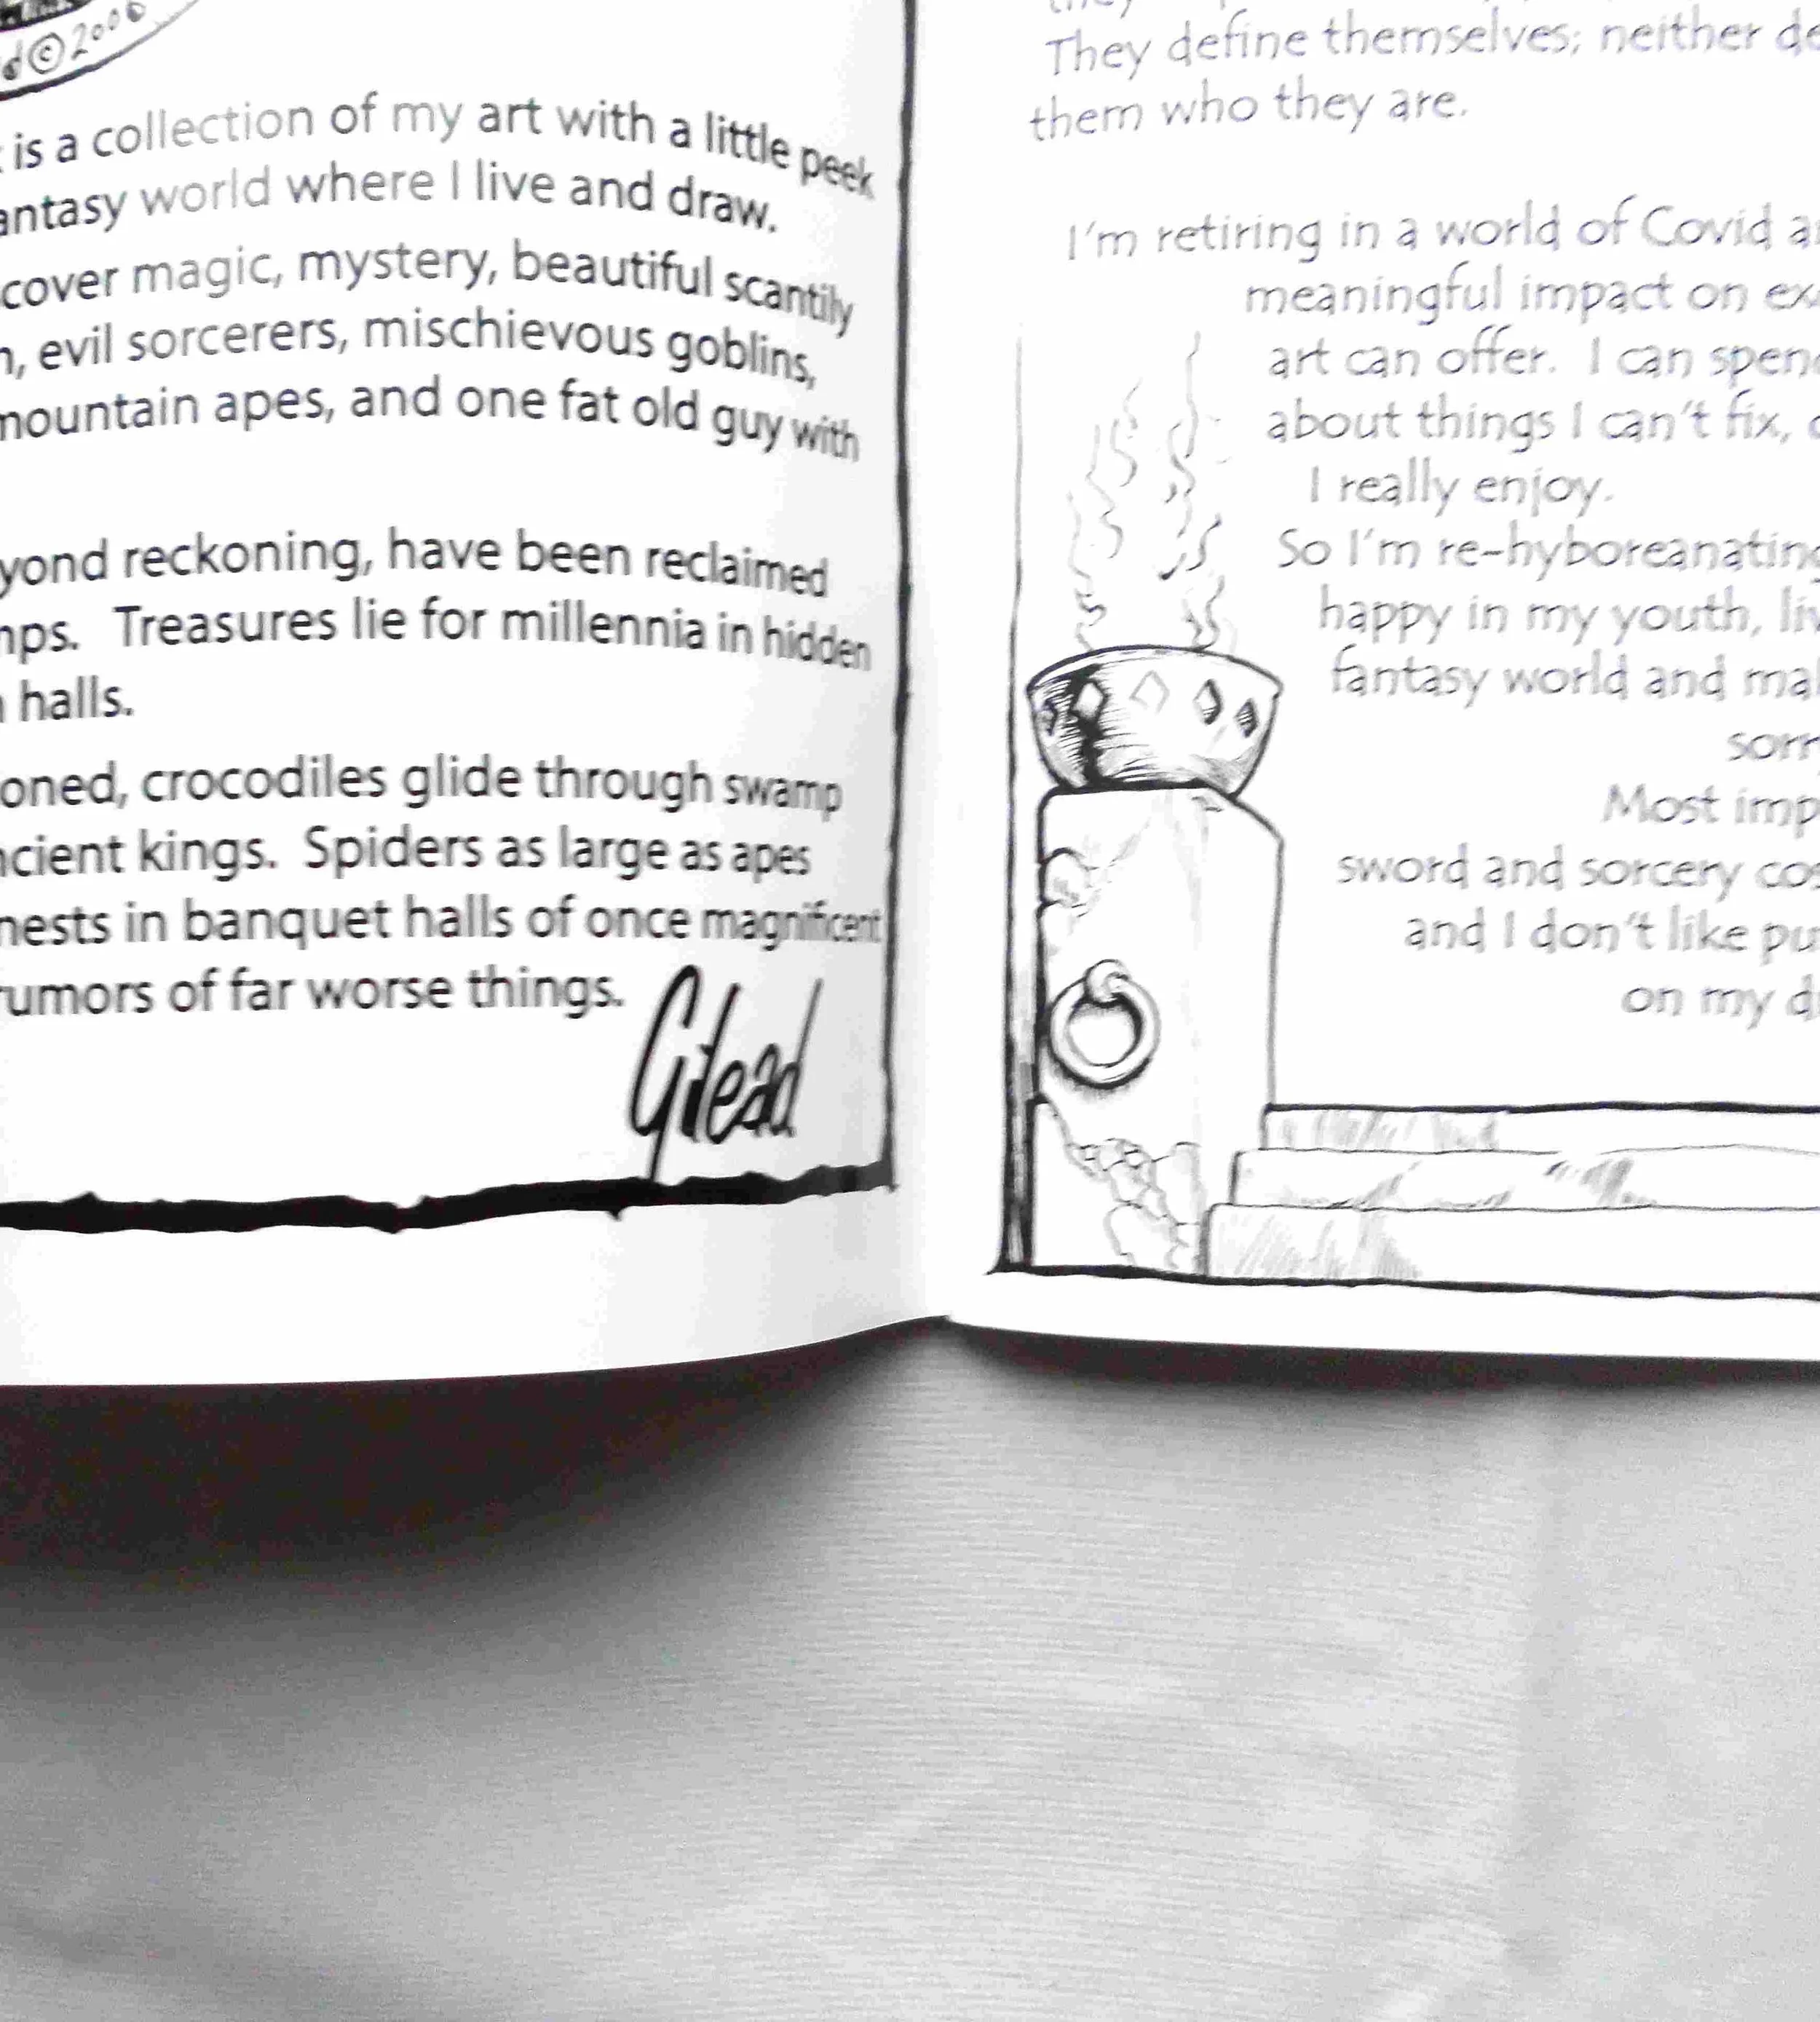 ©2006
is a collection of my art with a little peek
antasy world where I live and draw.
cover magic, mystery, beautiful scantily
n, evil sorcerers, mischievous goblins,
mountain apes, and one fat old guy with
yond reckoning, have been reclaimed
mps. Treasures lie for millennia in hidden
halls.
oned, crocodiles glide through swamp
ncient kings. Spiders as large as apes
nests in banquet halls of once magnificent
rumors of far worse things.
Gilead
they
They define themselves; neither de
them who they are.
I'm retiring in a world of Covid a
meaningful impact on ex
art can offer. I can spen
about things I can't fix,
I really enjoy.
So I'm re-hyboreanating
happy in my youth, liv
fantasy world and ma
sorr
Most imp
sword and sorcery cos
and I don't like pu
on my d